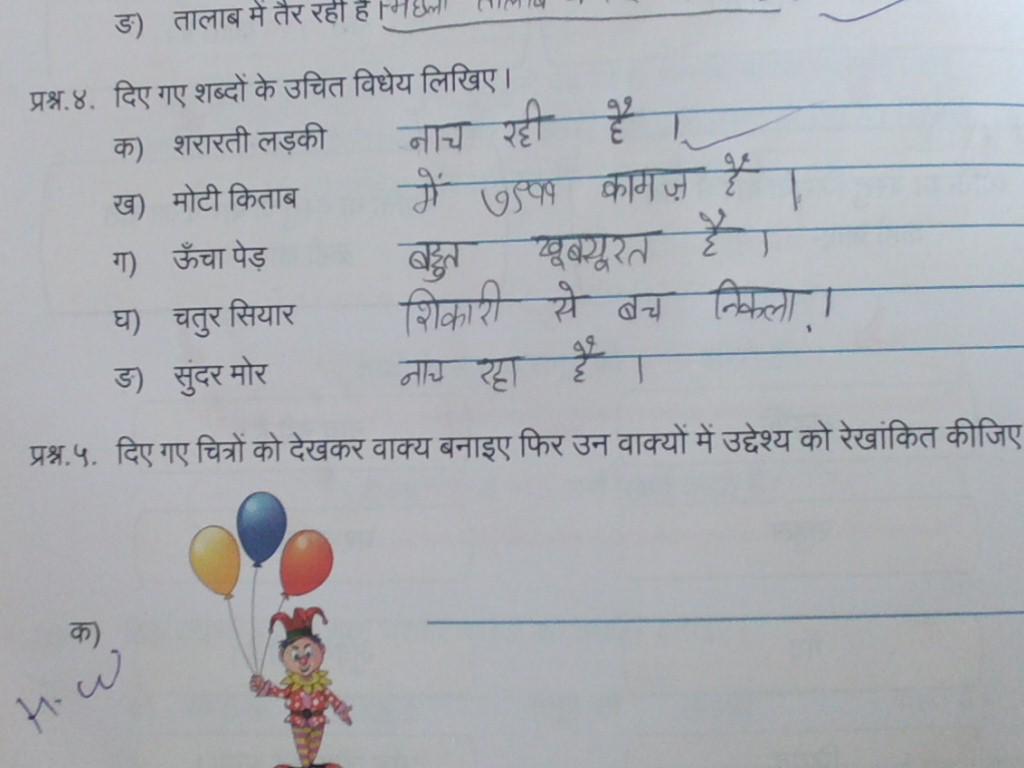 ङ) तालाब में तैर रही है। मछली तालाब
प्रश्न.४. दिए गए शब्दों के उचित विधेय लिखिए।
क) शरारती लड़की नाच रही है ।
ख) मोटी किताब में कागज़ है ।
ग) ऊँचा पेड़ बहुत खूबसूरत है ।
घ) चतुर सियार शिकारी से बच निकला ।
ङ) सुंदर मोर नाच रहा है ।
प्रश्न.५. दिए गए चित्रों को देखकर वाक्य बनाइए फिर उन वाक्यों में उद्देश्य को रेखांकित कीजिए
क)
H.W